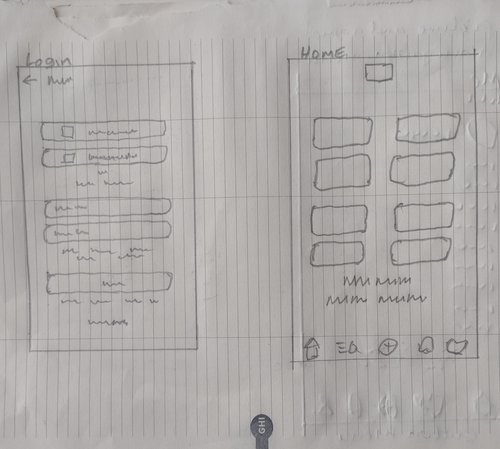 Login
HOME
GHI